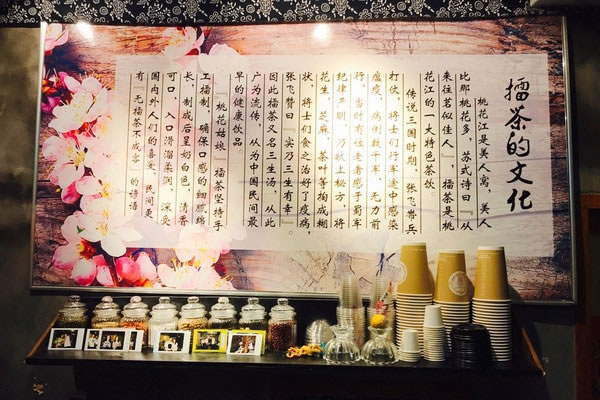 擂茶的文化
桃花江是美人窝，美人
比那桃花多，苏轼诗曰『从
来佳茗似佳人』，擂茶是桃
花江的一大特色茶饮
传说三国时期，张飞带兵
打仗，将士们行军途中感染
瘟疫，病倒数千军，无力前
行，当时有位老者感于蜀军
纪律严明，乃献上秘方，将
花生，芝麻，茶叶等捣成糊
状，将士们食之治好了疫病，
张飞赞曰『实乃三生有幸』。
因此擂茶又名三生汤，从此
广为流传，从为中国民间最
早的健康饮品
『桃花姑娘』擂茶坚持手
工擂制，确保口感的细腻绵
长，制成后呈奶白色，清香
可口，入口滑溜柔润，深受
国内外人们的喜爱，民间更
有『无擂茶不成客』的诗语